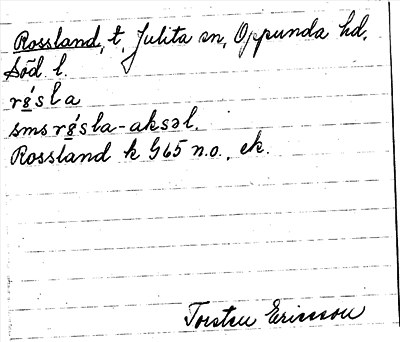 Rossland, t, Julita sn, Oppunda hd,
Söd l.
rósla
sms rósla-aksəl.
Rossland k G65 n.o., ek.
Torsten Ericsson